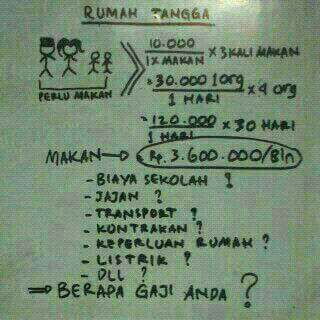 RUMAH TANGGA
10.000 / 1X MAKAN × 3 KALI MAKAN
PERLU MAKAN
= 30.000 1 org / 1 HARI × 4 org
= 120.000 / 1 HARI × 30 HARI
MAKAN → Rp. 3.600.000/Bln
- BIAYA SEKOLAH ?
- JAJAN ?
- TRANSPORT ?
- KONTRAKAN ?
- KEPERLUAN RUMAH ?
- LISTRIK ?
- DLL ?
⇒ BERAPA GAJI ANDA ?